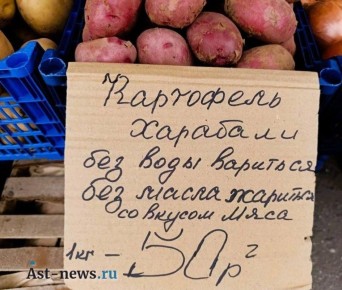 Картофель
Харабали
без воды вариться
без масла жариться
со вкусом мяса
1кг - 50р
Ast-news.ru